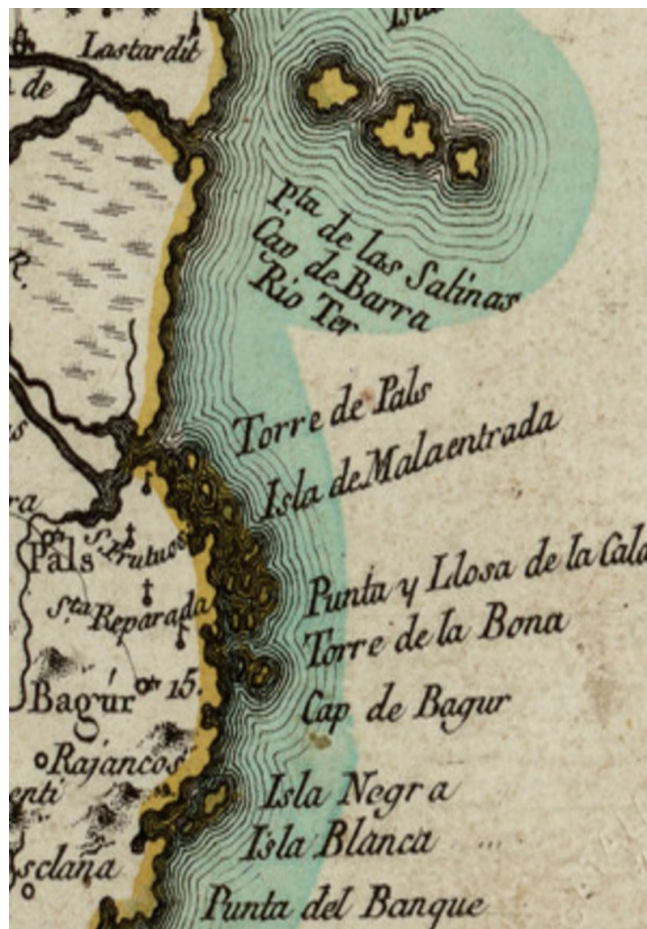 Isla
Lastardit
de
Pta. de las Salinas
Cap de Barra
Rio Ter
R.
Torre de Pals
Isla de Malaentrada
Pals
S. Frutuos
Punta y Llosa de la Cala
Sta. Reparada
Torre de la Bona
Bagúr 15.
Cap de Bagur
Rajancos
Isla Negra
Isla Blanca
sclaña
Punta del Banque